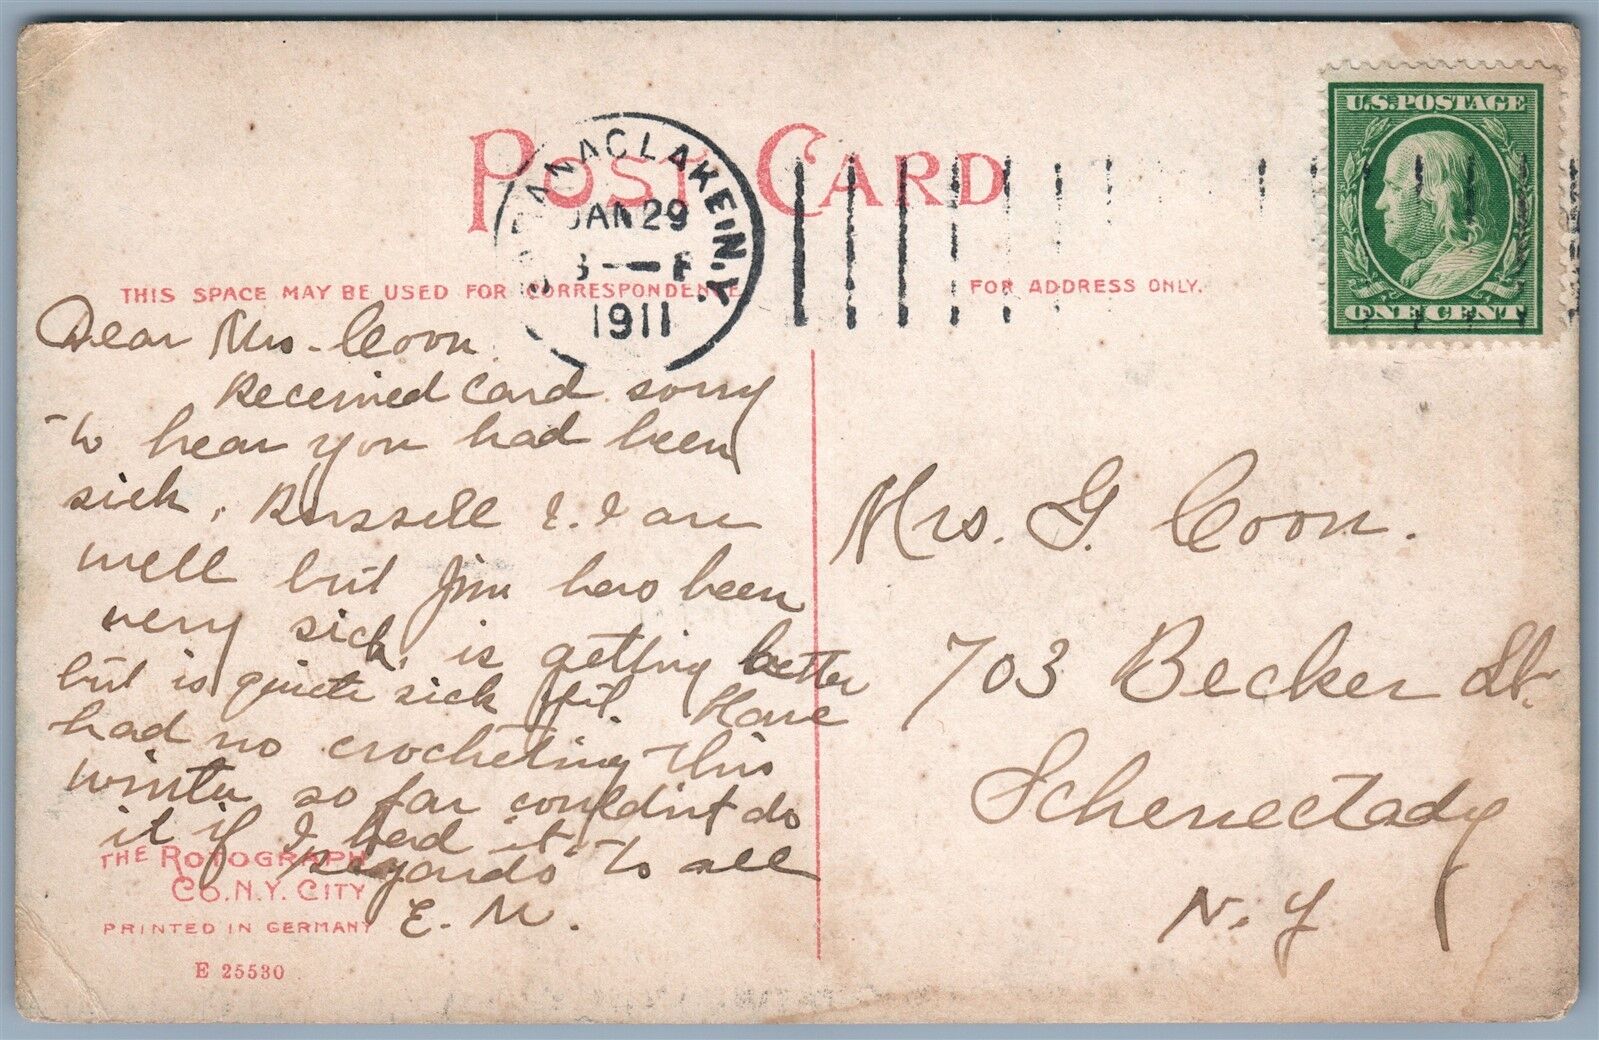 POST CARD
SARANAC LAKE N.Y.
JAN 29
1911
U.S. POSTAGE
ONE CENT
THIS SPACE MAY BE USED FOR CORRESPONDENCE
FOR ADDRESS ONLY.
Dear Mrs. Coon.
Received card sorry
to hear you had been
sick. Russell & I are
well but Jim has been
very sick, is getting better
but is quiete sick yit. Have
had no crocheting this
winter so far couldint do
it if I had it
regards to all
E. M.
Mrs. G. Coon.
703 Becker St.
Schenectady
N. Y
THE ROTOGRAPH
CO. N.Y. CITY
PRINTED IN GERMANY
E 25530